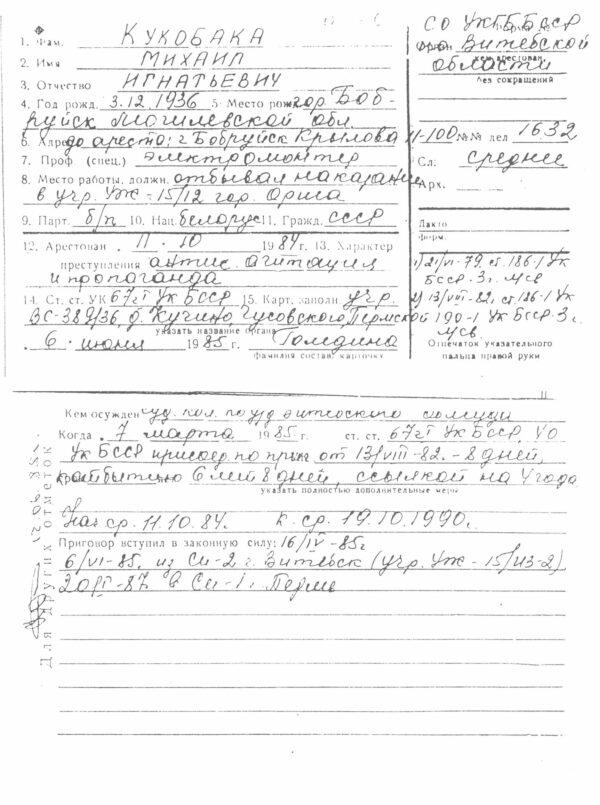 1. Фам. КУКОБАКА
2. Имя МИХАИЛ
3. Отчество ИГНАТЬЕВИЧ
4. Год рожд. 3.12.1936 5. Место рож. гор. Боб-
руйск Могилевской обл.
6. Адрес до ареста: г. Бобруйск Крылова
7. Проф (спец.) электромонтер
8. Место работы, должн. отбывал наказание
в учр. УЖ-15/12 гор. Орша
9. Парт. б/п 10. Нац. белорус 11. Гражд. СССР
12. Арестован 11.10 1984 г. 13. Характер
преступления антис. агитация
и пропаганда
14. Ст. ст. УК 67 ч I УК БССР 15. Карт. заполн. учр.
ВС-389/36, д. Кучино Чусовского, Пермской
указать название органа
6 июня 1985 г. Голедина
фамилия состав. карточку
СО УКГБ БССР
Витебской
области
кем арестован
без сокращений
№№ дел 1632
Сл: среднее
Арх.
Дакто
форм.
1) 21/VI-79. ст. 186-1 УК
БССР. 3 г. ИТЛ
2) 13/VIII-82, ст. 186-1 УК
190-1 УК БССР. 3 г.
Отпечаток указательного
пальца правой руки
II
Кем осужден суд. кол. по у/д Витебского облсуда
Когда 7 марта 1985 г. ст. ст. 67 ч I УК БССР, 40
УК БССР присоед. по приг. от 13/VIII-82. - 8 дней,
к отбытию 6 лет 8 дней, ссылкой на 4 года
указать полностью дополнительные меры
Нач. ср. 11.10.84. К. ср. 19.10.1990.
Приговор вступил в законную силу: 16/IV-85г
6/VI-85. из Си-2 г. Витебск (учр. УЖ-15/ИЗ-2)
в Си-1 г. Пермь
Для других отметок